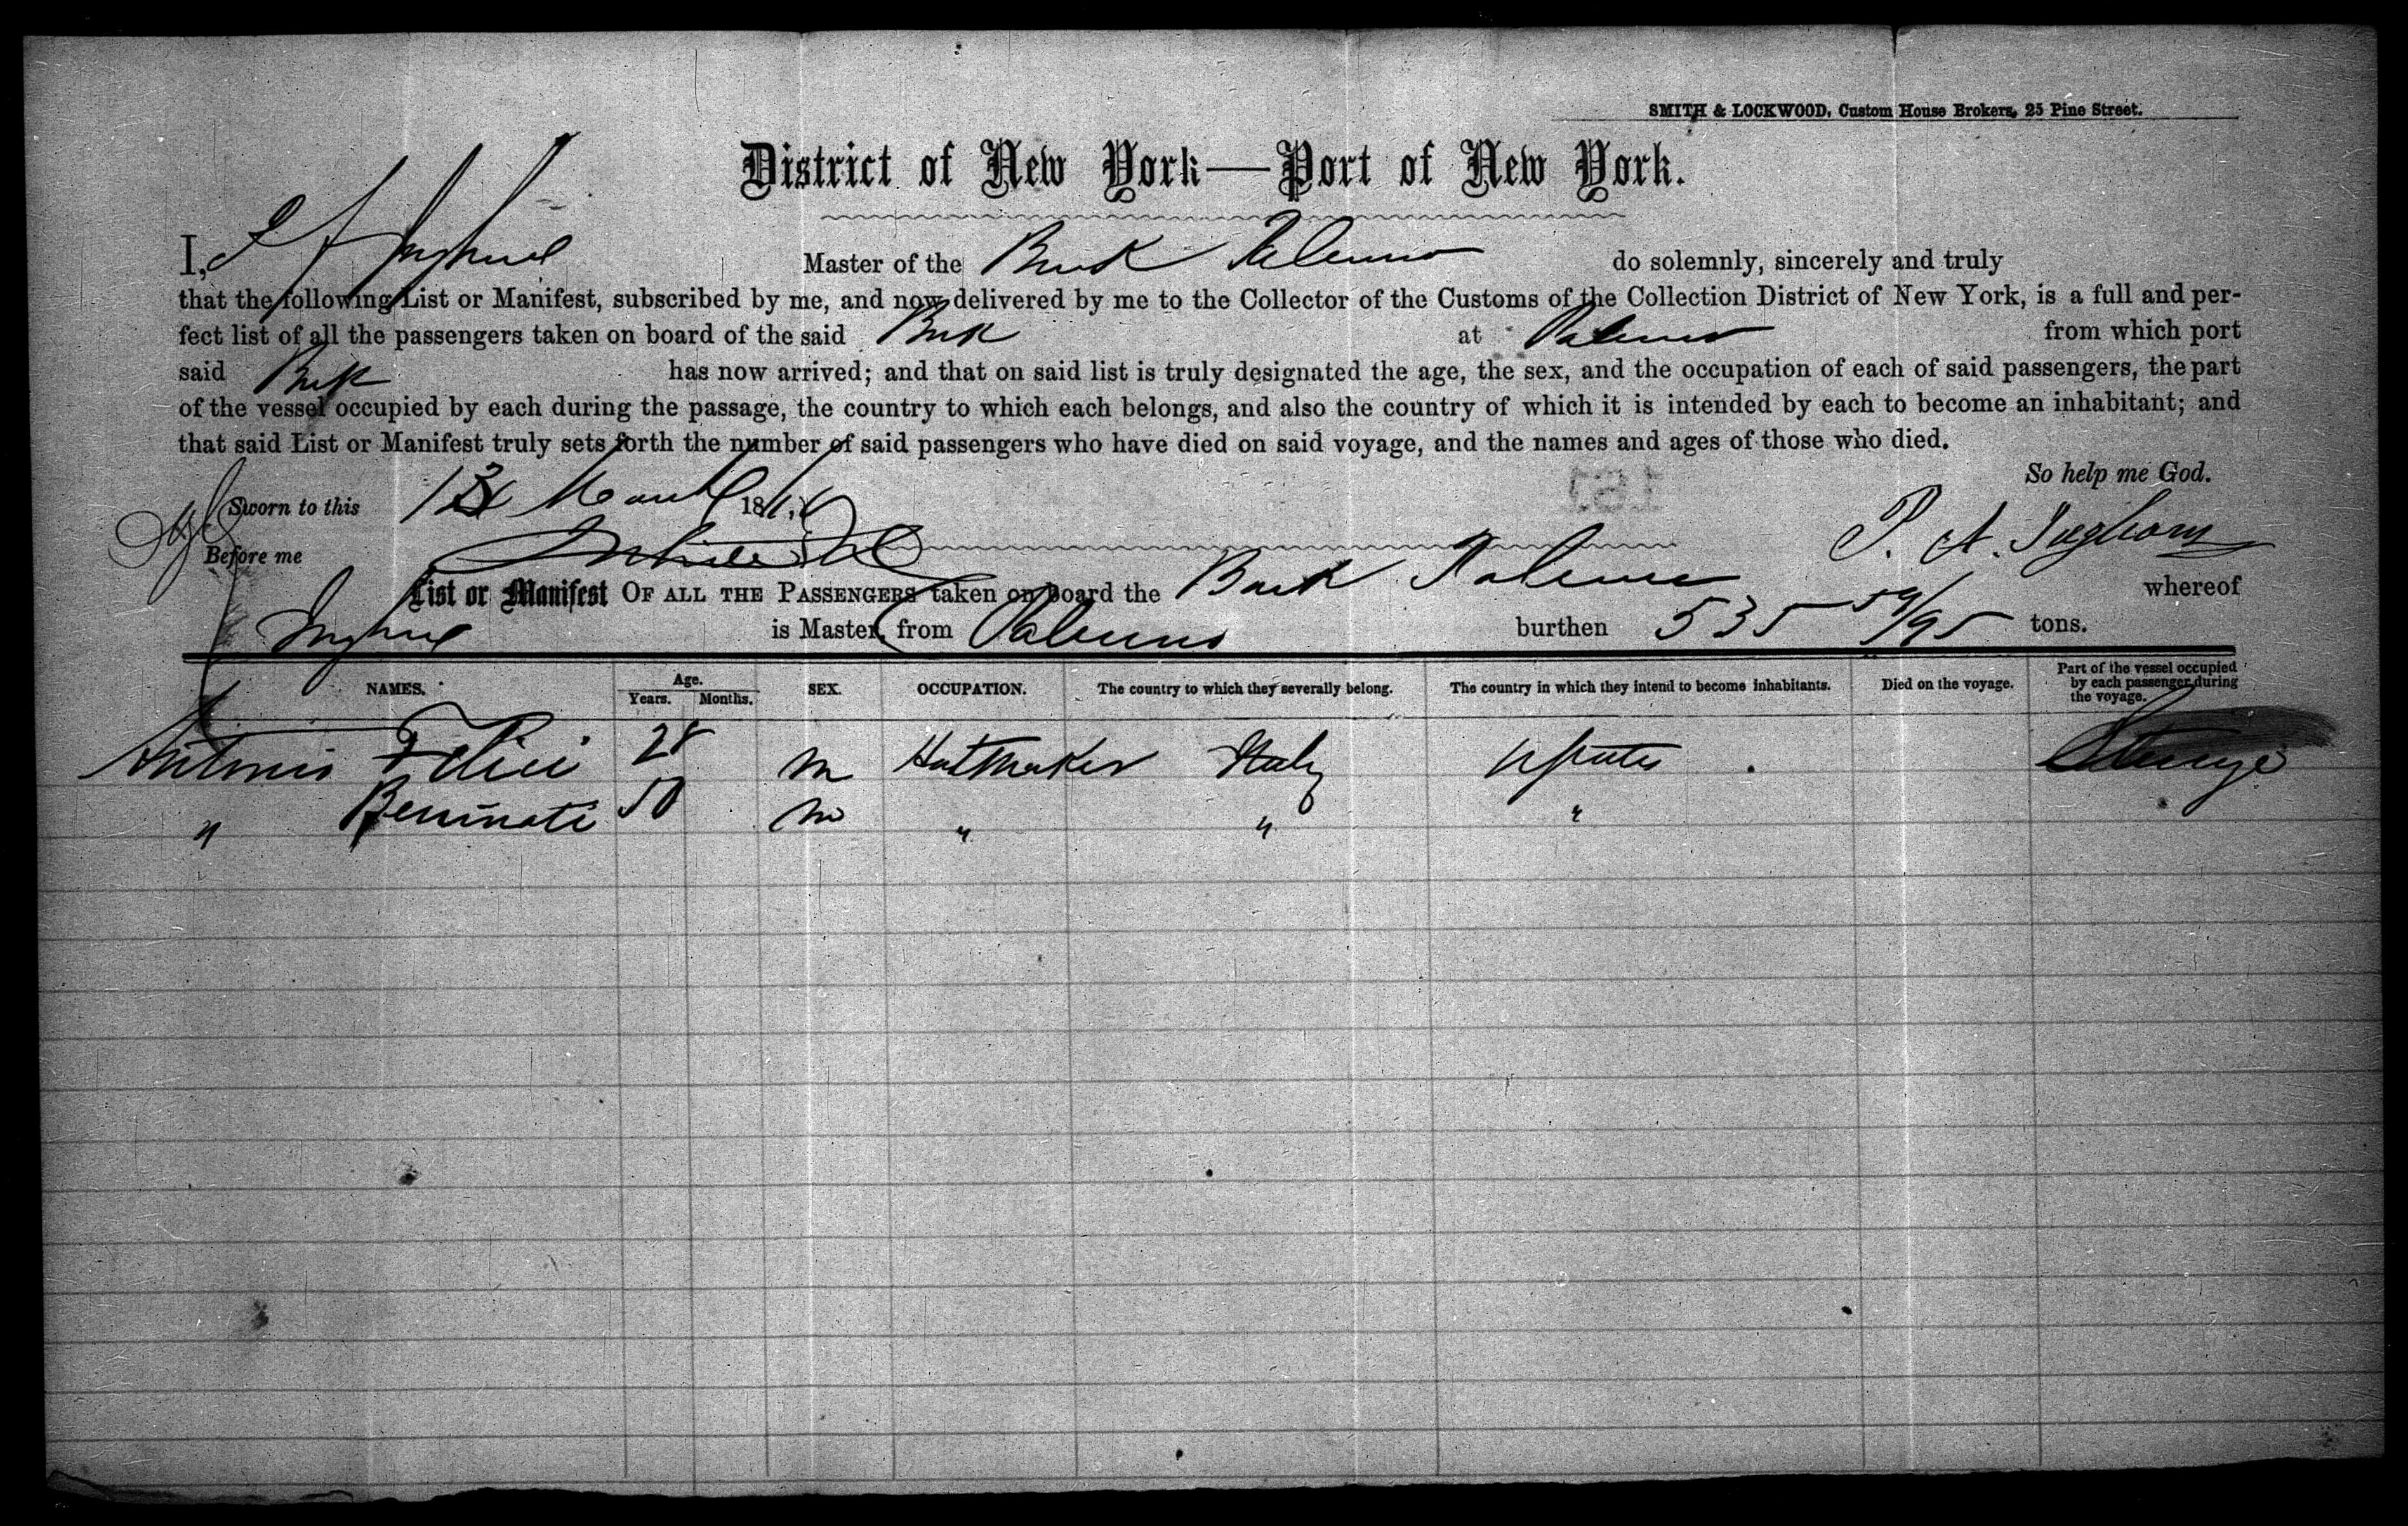 SMITH & LOCKWOOD, Custom House Brokers, 25 Pine Street.
District of New York—Port of New York.
I, Master of the Bark Palermo do solemnly, sincerely and truly
that the following List or Manifest, subscribed by me, and now delivered by me to the Collector of the Customs of the Collection District of New York, is a full and per-
fect list of all the passengers taken on board of the said Bark at Palermo from which port
said Bark has now arrived; and that on said list is truly designated the age, the sex, and the occupation of each of said passengers, the part
of the vessel occupied by each during the passage, the country to which each belongs, and also the country of which it is intended by each to become an inhabitant; and
that said List or Manifest truly sets forth the number of said passengers who have died on said voyage, and the names and ages of those who died.
So help me God.
Sworn to this 13 March 186
Before me
P. A. Ingham
List or Manifest OF ALL THE PASSENGERS taken on board the Bark Palermo whereof
is Master, from Palermo burthen 535 59/95 tons.
NAMES. Age. Years. Months. SEX. OCCUPATION. The country to which they severally belong. The country in which they intend to become inhabitants. Died on the voyage. Part of the vessel occupied by each passenger during the voyage.
Antonio Felici 28 M Hatmaker Italy U States Steerage
" 50 M " " "